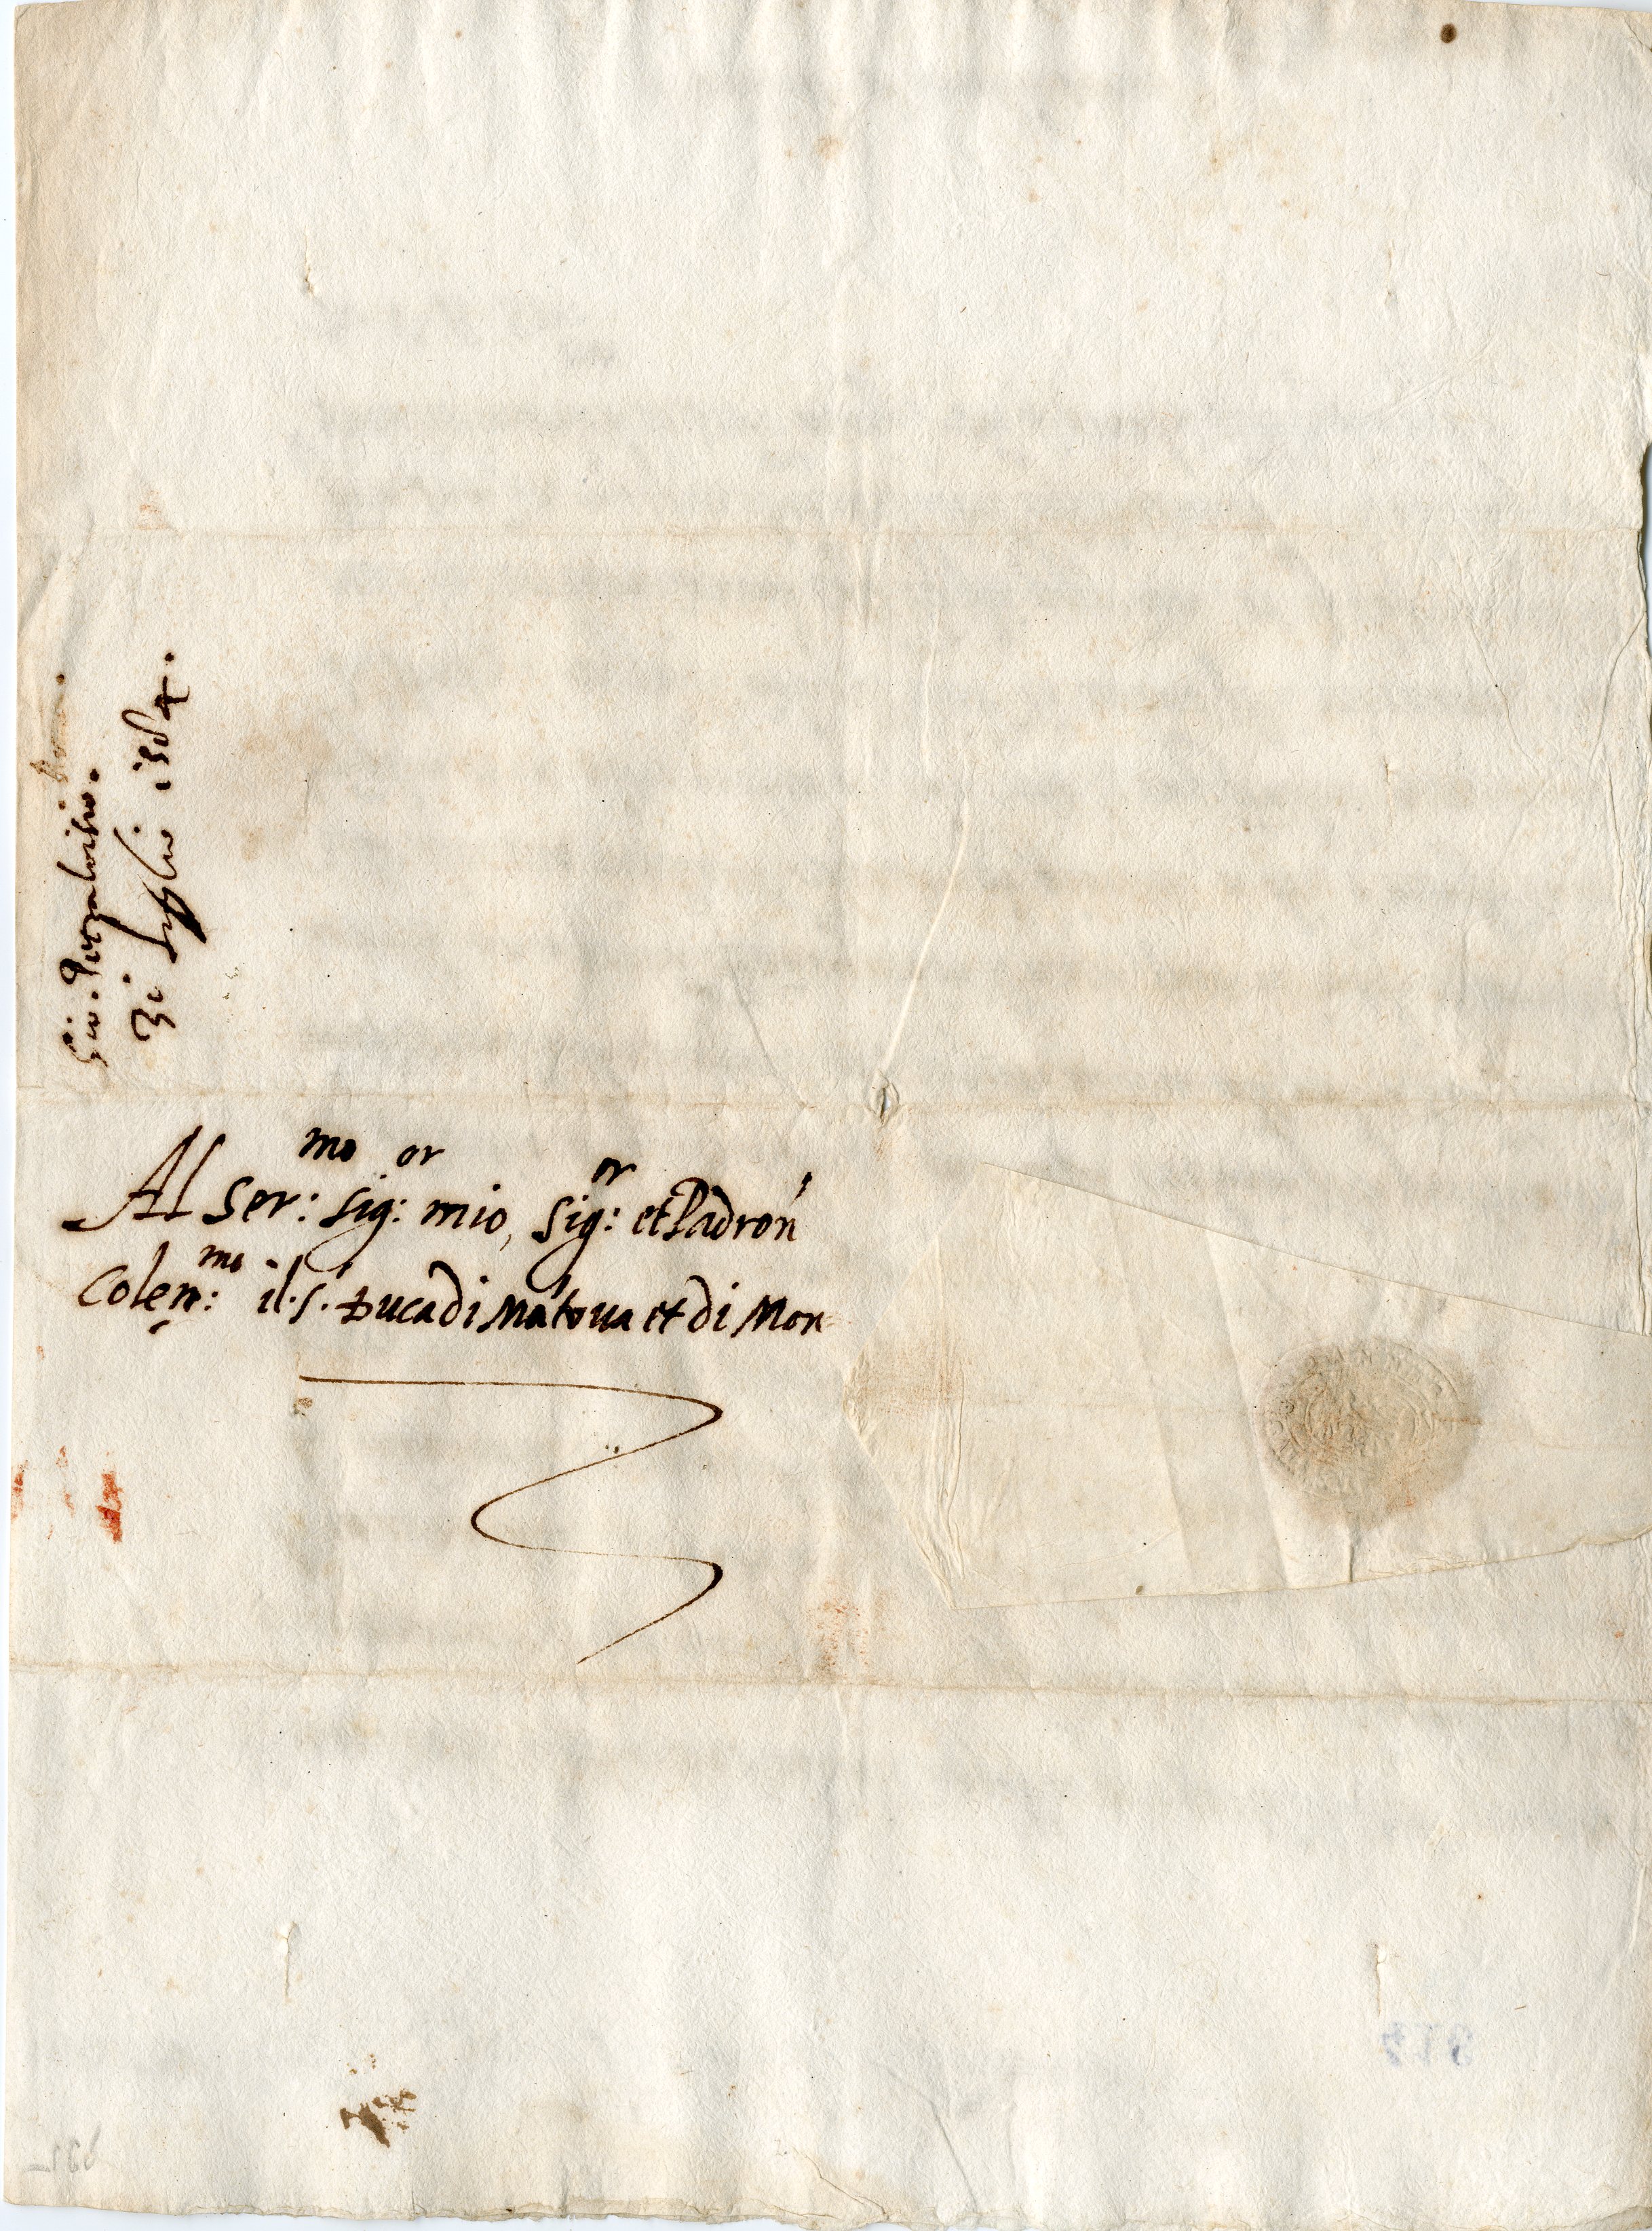 Gio. Pietralvisio.
31 Luglio 1584.
Al Ser:mo Sig:or mio, Sig:or et Padron
Colen:mo il S. Duca di Mãtova et di Mon